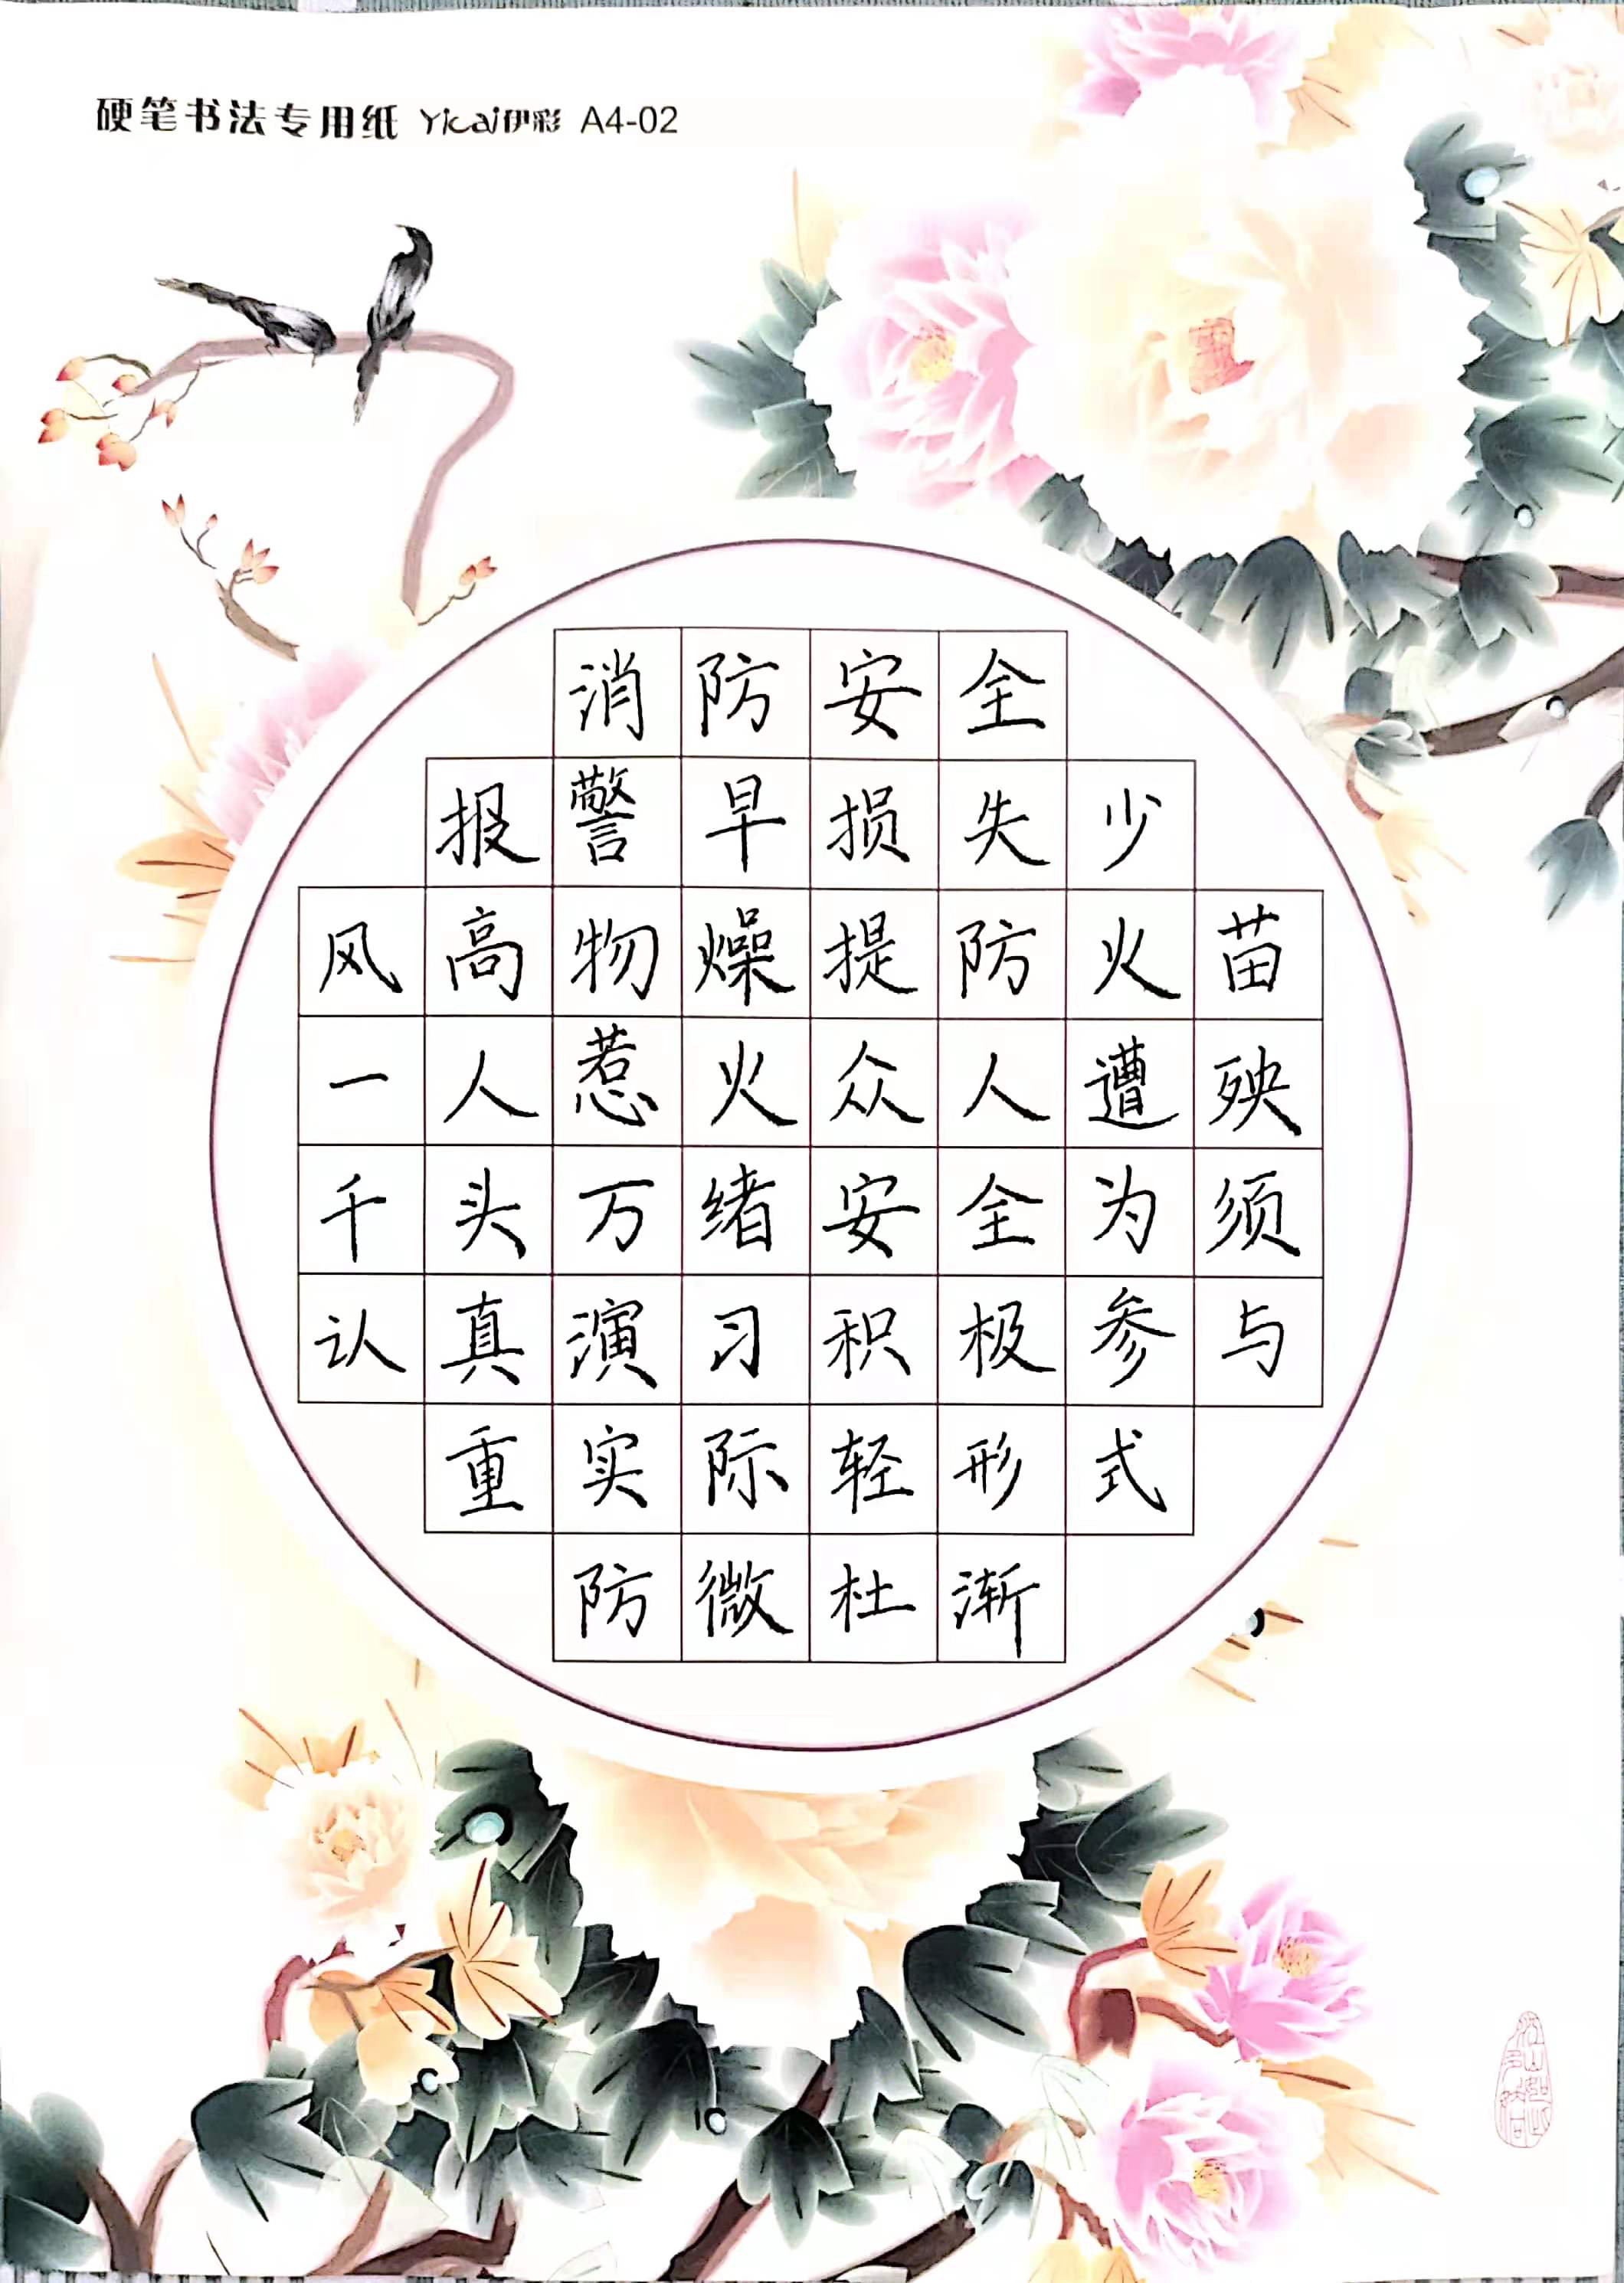 硬笔书法专用纸 Yicai伊彩 A4-02
消防安全
报警早损失少
风高物燥提防火苗
一人惹火众人遭殃
千头万绪安全为须
认真演习积极参与
重实际轻形式
防微杜渐